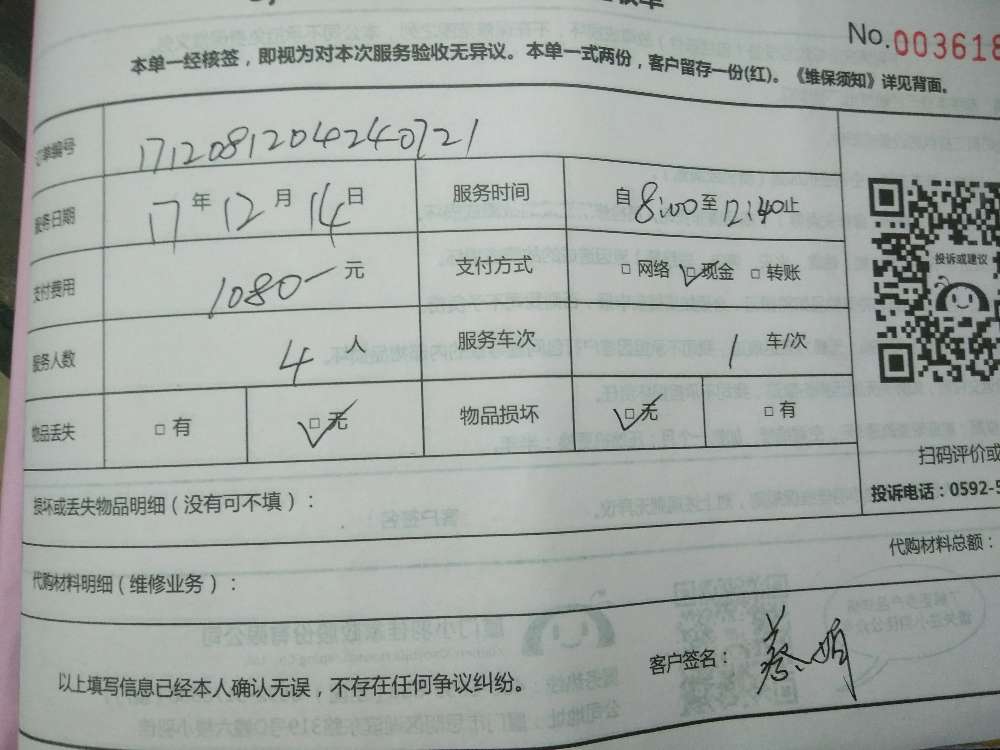 No.003618
本单一经核签，即视为对本次服务验收无异议。本单一式两份，客户留存一份(红)。《维保须知》详见背面。
订单编号 1712081204240721
服务日期 17年12月14日 服务时间 自8:00至12:40止
支付费用 1080一元 支付方式 □网络 ☑现金 □转账
服务人数 4人 服务车次 1车/次
物品丢失 □有 ☑无 物品损坏 ☑无 □有
投诉或建议
扫码评价或
投诉电话：0592-5
损坏或丢失物品明细（没有可不填）：
代购材料总额：
代购材料明细（维修业务）：
客户签名：蔡娟
以上填写信息已经本人确认无误，不存在任何争议纠纷。